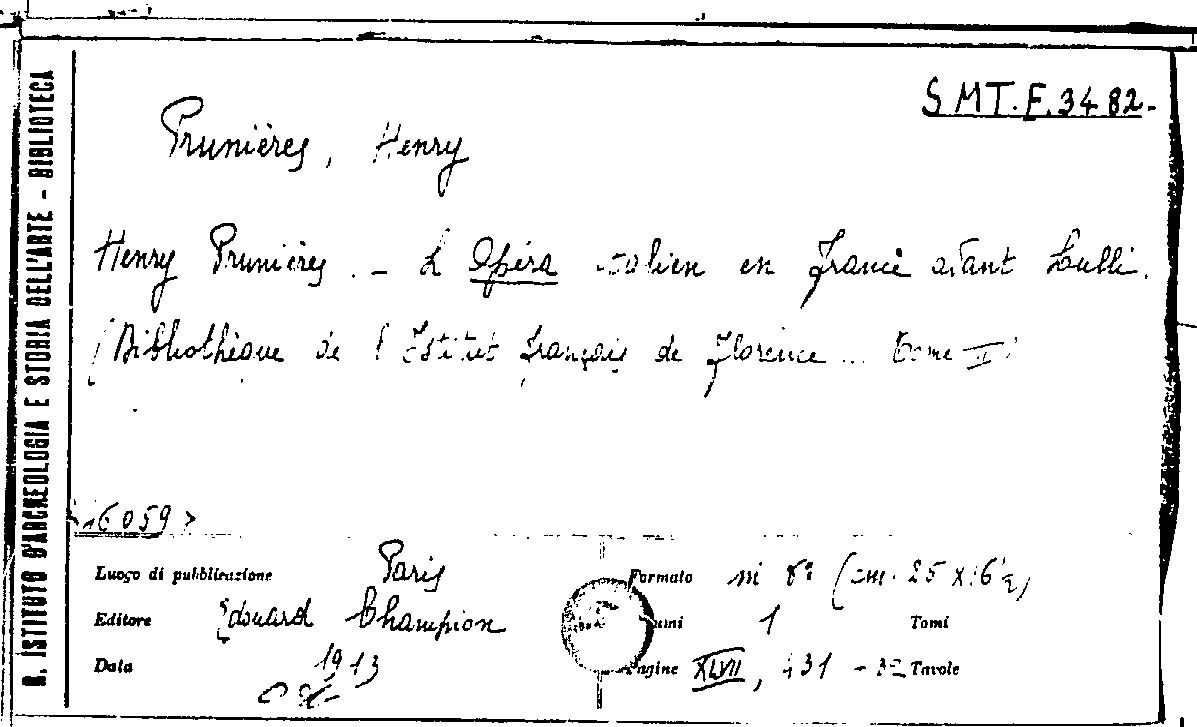 R. ISTITUTO D'ARCHEOLOGIA E STORIA DELL'ARTE - BIBLIOTECA
SMT.F.3482-
Prunières, Henry
Henry Prunières. - L'Opéra italien en France avant Lulli.
(Bibliothèque de l'Institut français de Florence... Tome I)
<16059>
Luogo di pubblicazione Paris
Formato in 8° (cm. 25 x 16½)
Editore Edouard Champion
Volumi 1 Tomi
Data 1913
Pagine XLVII, 431 - 32 Tavole